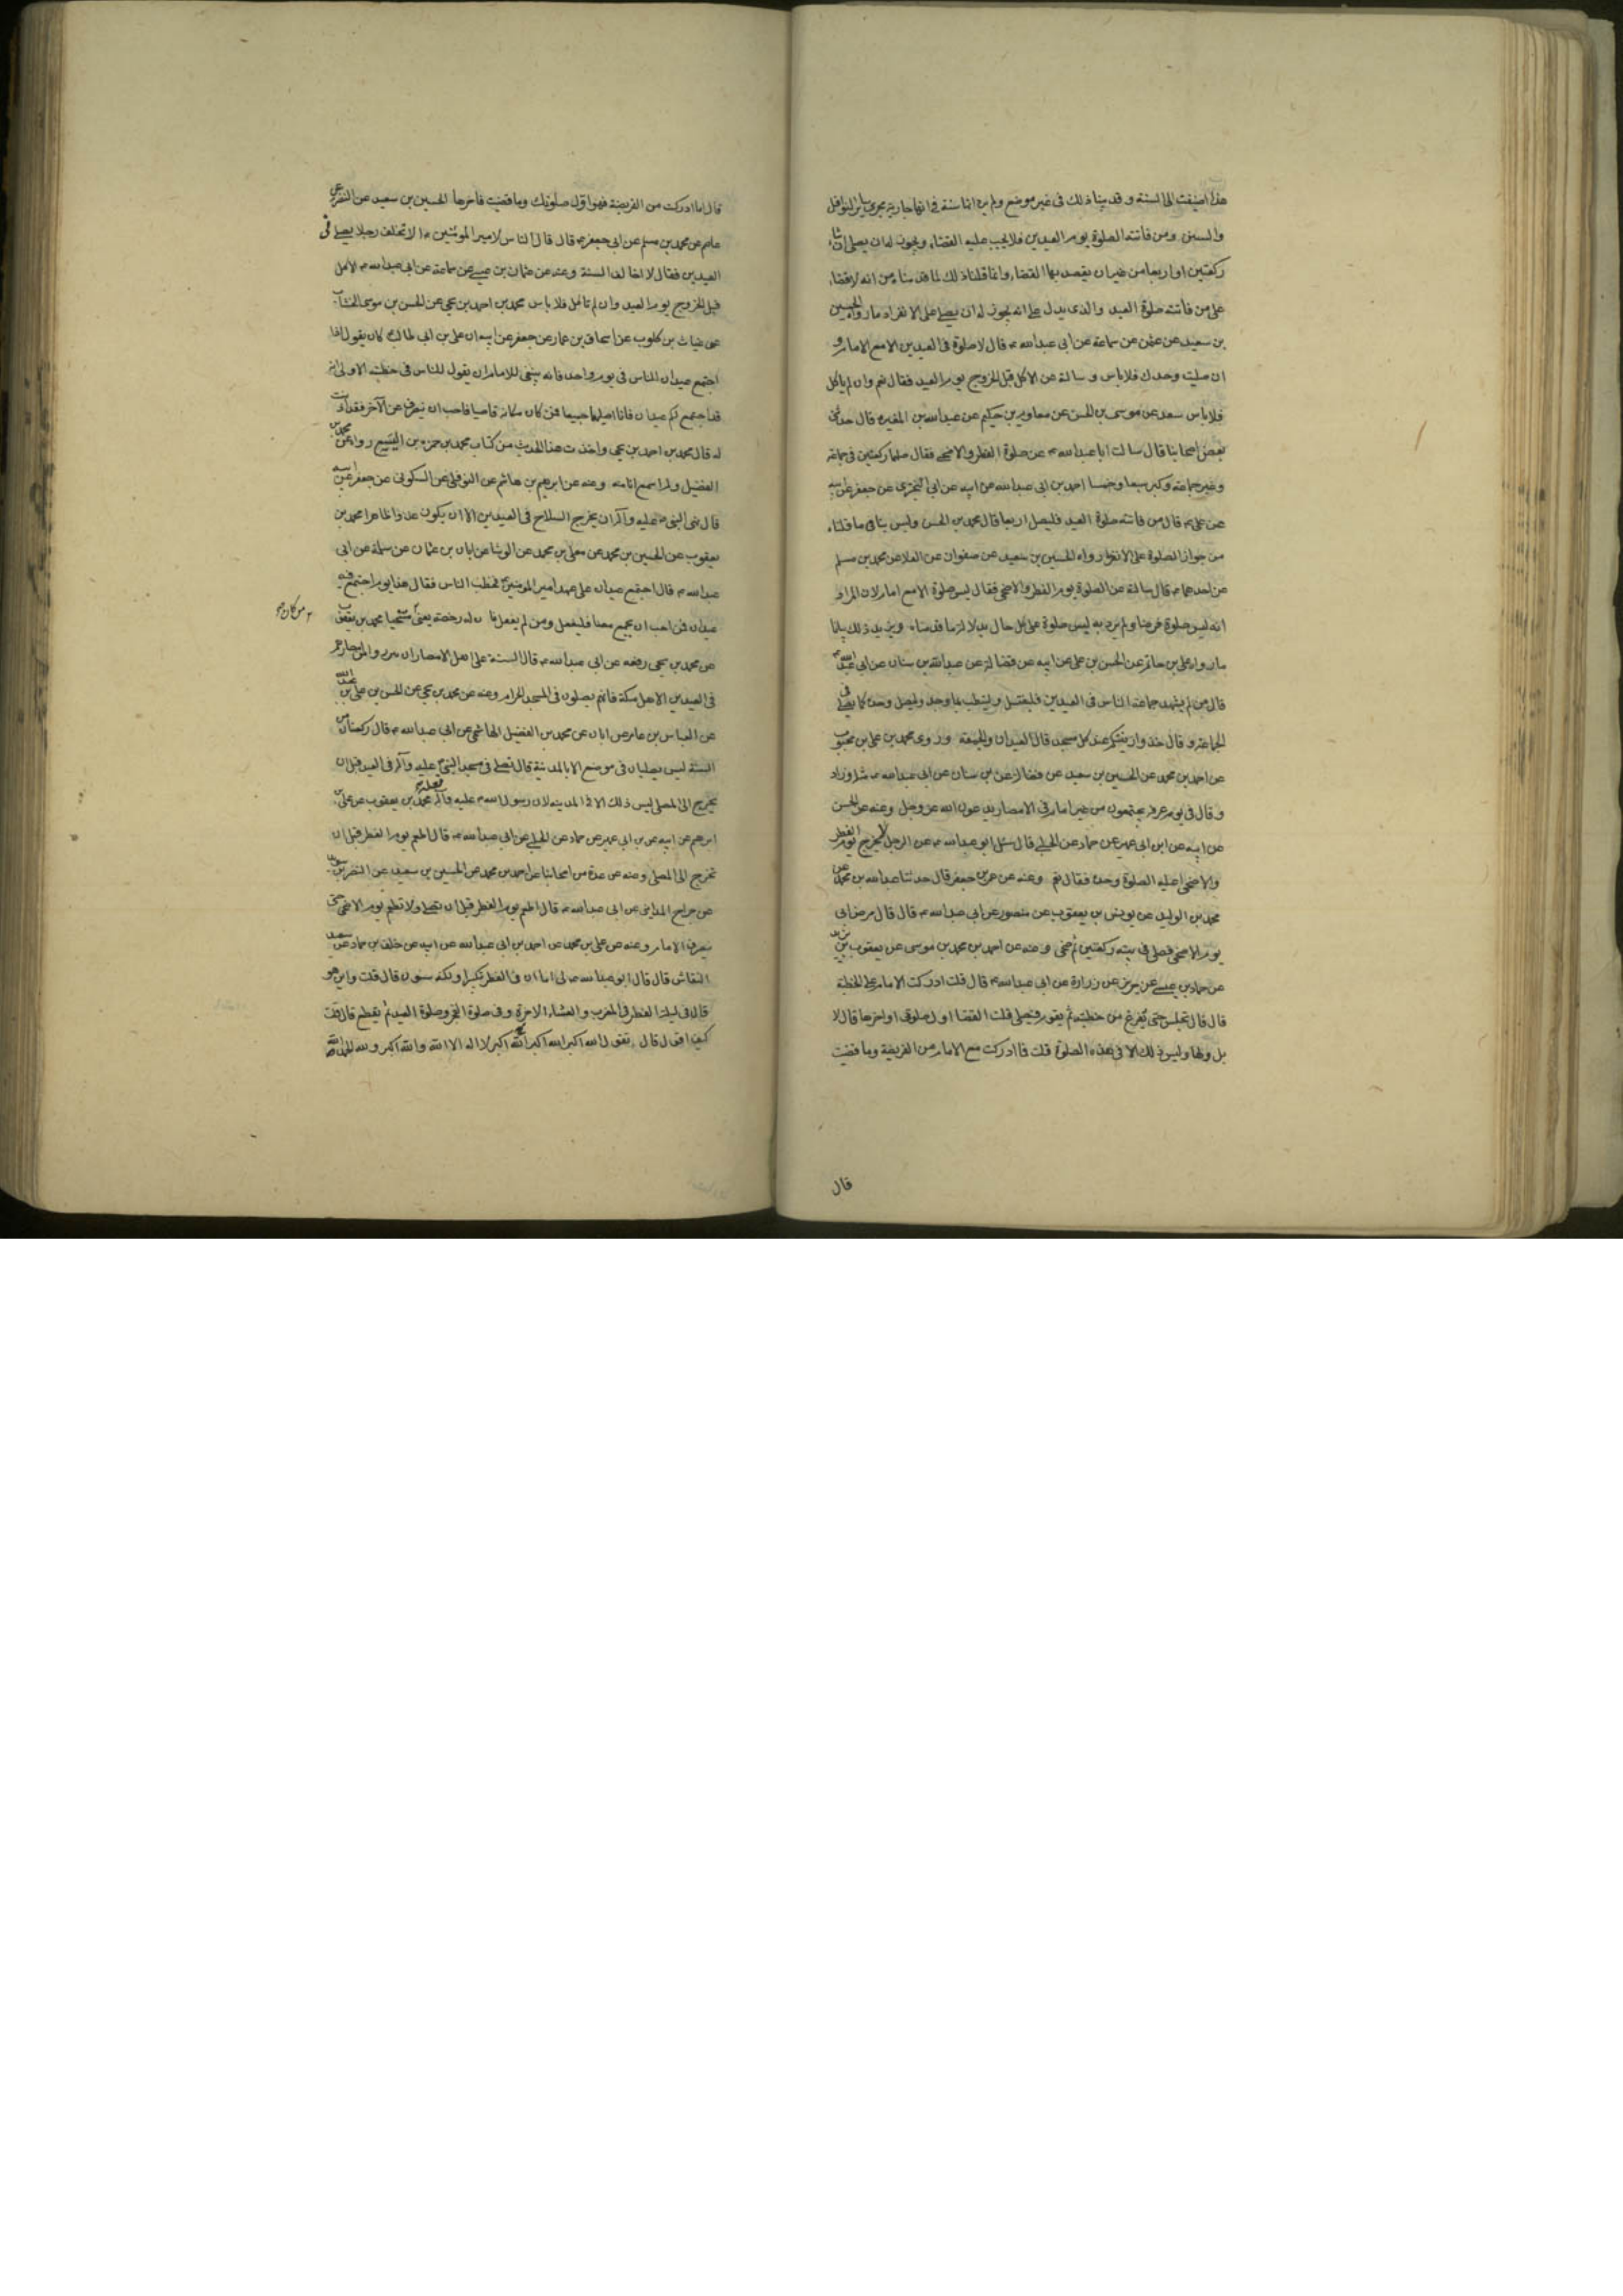 هذا اضيفت الى السنة و قد بينا ذلك في غير موضع ولم يرد انها سنة في انها جارية مجرى ساير النوافل
والسنن ومن فاتته الصلوة يوم العيدين فلا يجب عليه القضاء ويجوز له ان يصلي ان شاء
ركعتين او اربعا من غير ان يقصد بها القضاء وانما قلنا ذلك لما قدمناه من انه لا قضاء
على من فاتته صلوة العيد والذي يدل على انه يجوز له ان يصلي على الانفراد ما رواه الحسين
بن سعيد عن عثمن عن سماعة عن ابي عبدالله ع قال لا صلوة في العيدين الا مع الامام و
ان صليت وحدك فلا باس و سالته عن الاكل قبل الخروج يوم العيد فقال نعم وان لم ياكل
فلا باس سعد عن موسى بن الحسن عن معاوية بن حكيم عن عبدالله بن المغيره قال حدثني
بعض اصحابنا قال سالت ابا عبدالله ع عن صلوة الفطر والاضحى فقال صلهما ركعتين في جماعة
وغير جماعة وكبر سبعا وخمسا احمد بن ابي عبدالله عن ابيه عن ابي البختري عن جعفر عن ابيه
عن علي ع قال من فاتته صلوة العيد فليصل اربعا قال محمد بن الحسن وليس ينافي ما قلناه
من جواز الصلوة على الانفراد ما رواه الحسين بن سعيد عن صفوان عن العلا عن محمد بن مسلم
عن احدهما ع قال سالته عن الصلوة يوم الفطر والاضحى فقال ليس صلوة الا مع امام لان المراد
انه ليس صلوة فرضا ولم يرد به ليس صلوة على كل حال بدلالة ما قدمناه ويزيد ذلك بيانا
ما رواه علي بن حاتم عن الحسن بن علي عن ابيه عن فضالة عن عبدالله بن سنان عن ابي عبدالله ع
قال من لم يشهد جماعة الناس في العيدين فليغتسل وليتطيب بما وجد وليصل وحده كما يصلي في
الجماعة و قال خذوا زينتكم عند كل مسجد قال العيدان والجمعة وروى محمد بن علي بن محبوب
عن احمد بن محمد عن الحسين بن سعيد عن فضالة عن بن سنان عن ابي عبدالله ع مثله وزاد
وقال في يوم عرفة يجتمعون من غير امام في الامصار يدعون الله عز وجل وعنه عن الحسن
عن ابيه عن ابن ابي عمير عن حماد عن الحلبي قال سئل ابو عبدالله ع عن الرجل لا يخرج يوم الفطر
والاضحى اعليه الصلوة وحده فقال نعم وعنه عن عمر بن جعفر قال حدثنا عبدالله بن محمد عن
محمد بن الوليد عن يونس بن يعقوب عن منصور عن ابي عبدالله ع قال قال مرض ابي
يوم الاضحى فصلى في بيته ركعتين ثم ضحى وعنه عن احمد بن محمد بن موسى عن يعقوب بن يزيد
عن حماد بن عيسى عن حريز عن زرارة عن ابي عبدالله ع قال قلت ادركت الامام على الخطبة
قال قال تجلس حتى يفرغ من خطبته ثم يقوم فيصلي قلت القضا اول صلوتي او اخرها قال لا
بل اولها وليس ذلك الا في هذه الصلوة قلت فما ادركت مع الامام من الفريضة وما قضيت
قال
قال اما ادركت من الفريضة فهو اول صلوتك وما قضيت فاخرها الحسين بن سعيد عن النضر عن
عاصم عن محمد بن مسلم عن ابي جعفر ع قال قال الناس لامير المومنين ع الا تخلف رجلا يصلي في
العيدين فقال لا اخالف السنة وعنه عن عثمان بن عيسى عن سماعة عن ابي عبدالله ع الاكل
قبل الخروج يوم العيد وان لم تاكل فلا باس محمد بن احمد بن يحيى عن الحسن بن موسى الخشاب
عن غياث بن كلوب عن اسحاق بن عمار عن جعفر عن ابيه ان علي بن ابي طالب ع كان يقول اذا
اجتمع عيدان للناس في يوم واحد فانه ينبغي للامام ان يقول للناس في خطبته الاولى انه
قد اجتمع لكم عيدان فانا اصليهما جميعا فمن كان مكانه قاصيا فاحب ان ينصرف عن الآخر فقد اذنت
له قال محمد بن احمد بن يحيى واخذت هذا الحديث من كتاب محمد بن حمزه بن اليسع رواه عن محمد بن
الفضيل ولم اسمع انا منه وعنه عن ابرهيم بن هاشم عن النوفلي عن السكوني عن جعفر عن ابيه
قال نهى النبي ص عليه وآله ان يخرج السلاح في العيدين الا ان يكون عدوا ظاهرا محمد بن
يعقوب عن الحسين بن محمد عن معلى بن محمد عن الوشا عن ابان بن عثمان عن سلمة عن ابي
عبدالله ع قال اجتمع عيدان على عهد امير المومنين ع فخطب الناس فقال هذا يوم اجتمع فيه
عيدان فمن احب ان يجمع معنا فليفعل ومن لم يفعل فان له رخصة يعني متنحيا محمد بن يعقوب
من كان
عن محمد بن يحيى رفعه عن ابي عبدالله ع قال السنة على اهل الامصار ان يبرزوا من امصارهم
في العيدين الا اهل مكة فانهم يصلون في المسجد الحرام وعنه عن محمد بن يحيى عن الحسن بن علي بن عبدالله
عن العباس بن عامر عن ابان عن محمد بن الفضيل الهاشمي عن ابي عبدالله ع قال ركعتان من
السنة ليس يصليان في موضع الا بالمدينة قال تصلي في مسجد النبي ص عليه وآله في العيد قبل ان
يخرج الى المصلى ليس ذلك الا في المدينه لان رسول الله ص عليه وآله فعله محمد بن يعقوب عن علي بن
ابرهيم عن ابيه عن بن ابي عمير عن حماد عن الحلبي عن ابي عبدالله ع قال اطعم يوم الفطر قبل ان
تخرج الى المصلى وعنه عن عدة من اصحابنا عن احمد بن محمد عن الحسين بن سعيد عن النضر بن سويد
عن جراح المدايني عن ابي عبدالله ع قال اطعم يوم الفطر قبل ان تصلي ولا تطعم يوم الاضحى حتى
ينصرف الامام وعنه عن علي بن محمد عن احمد بن ابي عبدالله عن ابيه عن خلف بن حماد عن سعيد
النقاش قال قال ابو عبدالله ع لي اما ان في الفطر تكبيرا ولكنه مسنون قال قلت واين هو
قال في ليلة الفطر في المغرب والعشاء الاخرة وفي صلوة الفجر وصلوة العيد ثم يقطع قال قلت
كيف اقول قال تقول الله اكبر الله اكبر الله اكبر لا اله الا الله والله اكبر ولله الحمد